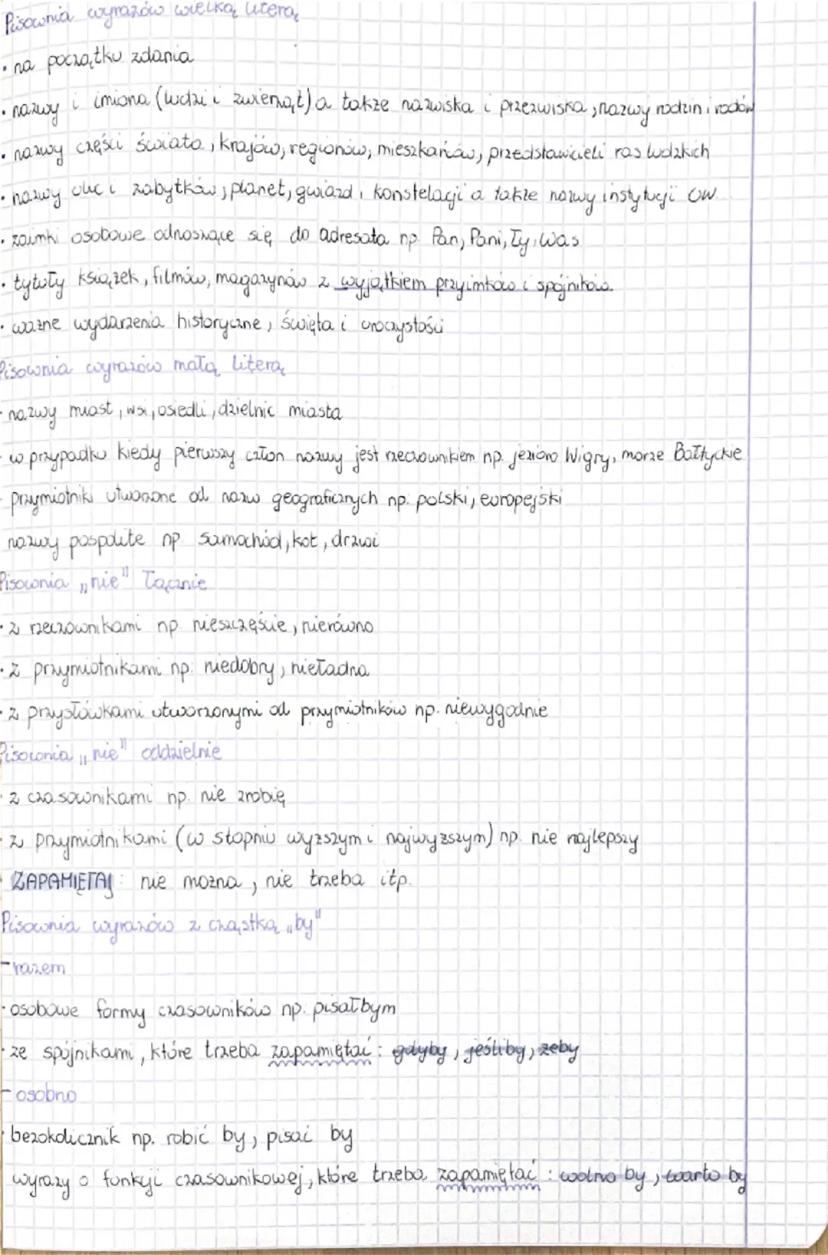 Pisownia wyrazów wielką literą
• na początku zdania
• nazwy i imiona (ludzi i zwierząt) a także nazwiska i przezwiska, nazwy rodzin i rodów
• nazwy części świata, krajów, regionów, mieszkańców, przedstawicieli ras ludzkich
• nazwy ulic i zabytków, planet, gwiazd i konstelacji a także nazwy instytucji
• zaimki osobowe odnoszące się do adresata np Pan, Pani, Ty, Was
• tytuły książek, filmów, magazynów z wyjątkiem przyimków i spójników.
• ważne wydarzenia historyczne, święta i uroczystości
Pisownia wyrazów małą literą
• nazwy miast, wsi, osiedli, dzielnic miasta
• w przypadku kiedy pierwszy człon nazwy jest rzeczownikiem np. jezioro Wigry, morze Bałtyckie
przymiotniki utworzone od nazw geograficznych np. polski, europejski
nazwy pospolite np samochód, kot, drzwi
Pisownia „nie" łącznie
• z rzeczownikami np nieszczęście, nierówno
• z przymiotnikami np. niedobry, nieładna
• z przysłówkami utworzonymi od przymiotników np. niewygodnie
Pisownia „nie" oddzielnie
• z czasownikami np. nie zrobię
• z przymiotnikami (w stopniu wyższym i najwyższym) np. nie najlepszy
ZAPAMIĘTAJ: nie można, nie trzeba itp.
Pisownia wyrazów z cząstką „by"
- razem
• osobowe formy czasowników np. pisałbym
• ze spójnikami, które trzeba zapamiętać: gdyby, jeśliby, żeby
- osobno
• bezokolicznik np. robić by, pisać by
wyrazy o funkcji czasownikowej, które trzeba zapamiętać: wolno by, warto by